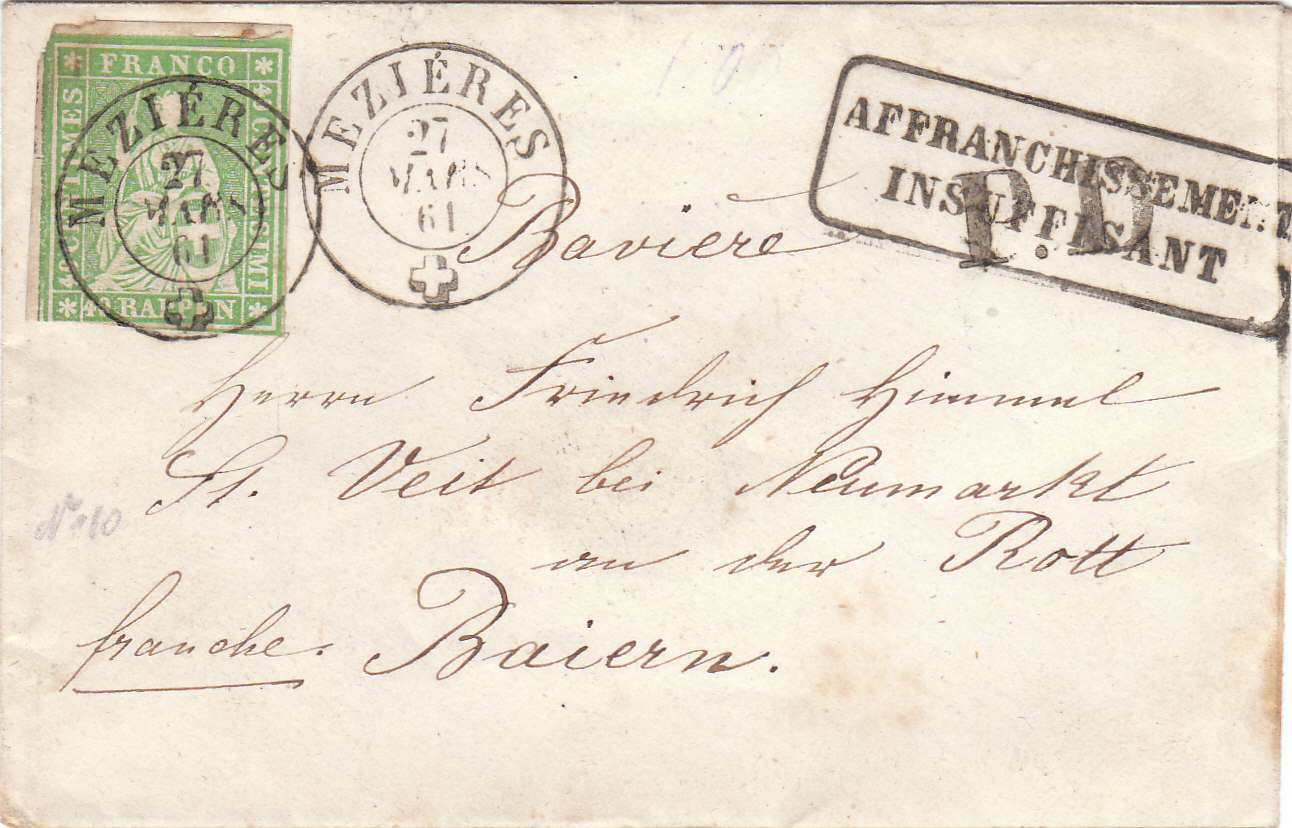 FRANCO
40 CENTIMES
40 RAPPEN
MEZIÉRES
27
MARS
61
MEZIÉRES
27
MARS
61
AFFRANCHISSEMENT
INSUFFISANT
P.D
Baviere
Herrn Friedrich Himmel
St. Veit bei Neumarkt
an der Rott
franche. Baiern.
No 10